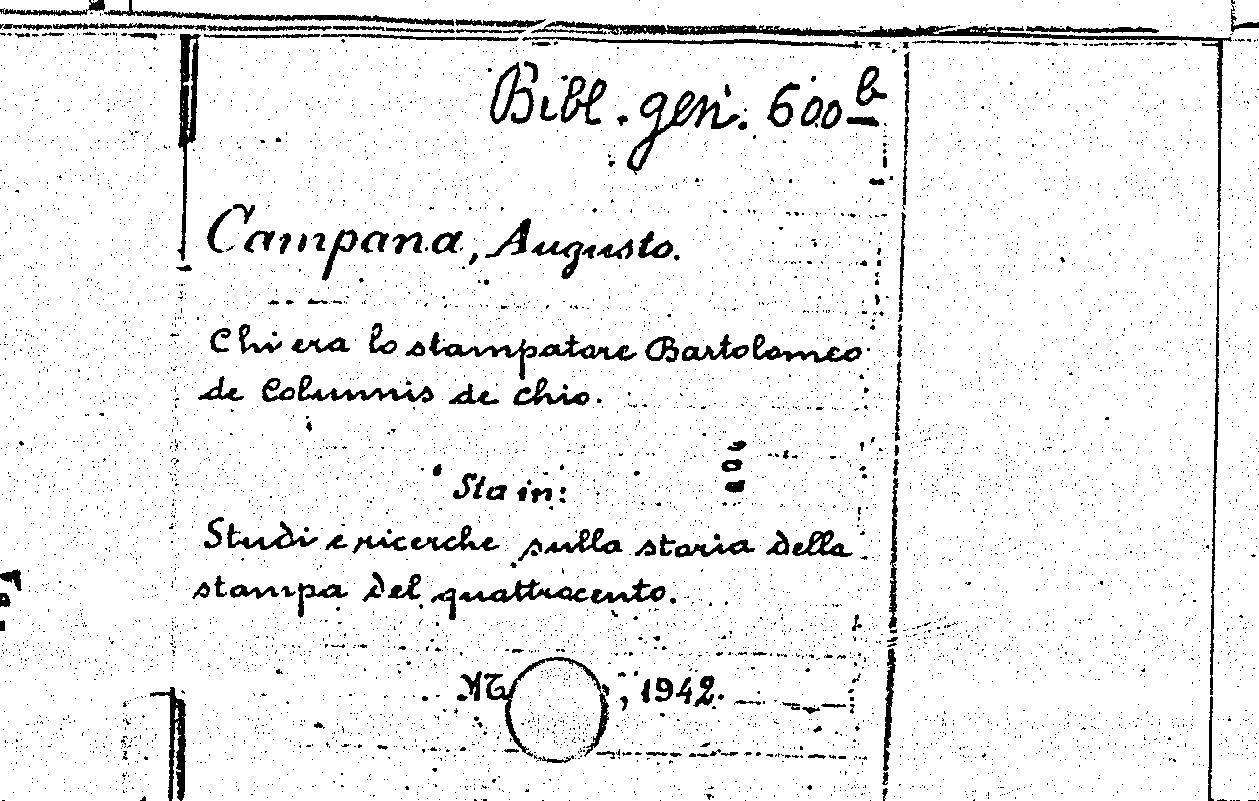 Bibl. gen. 600 b
Campana, Augusto.
Chi era lo stampatore Bartolomeo
de Columnis de Chio.
Sta in:
Studi e ricerche sulla storia della
stampa del quattrocento.
, 1942.